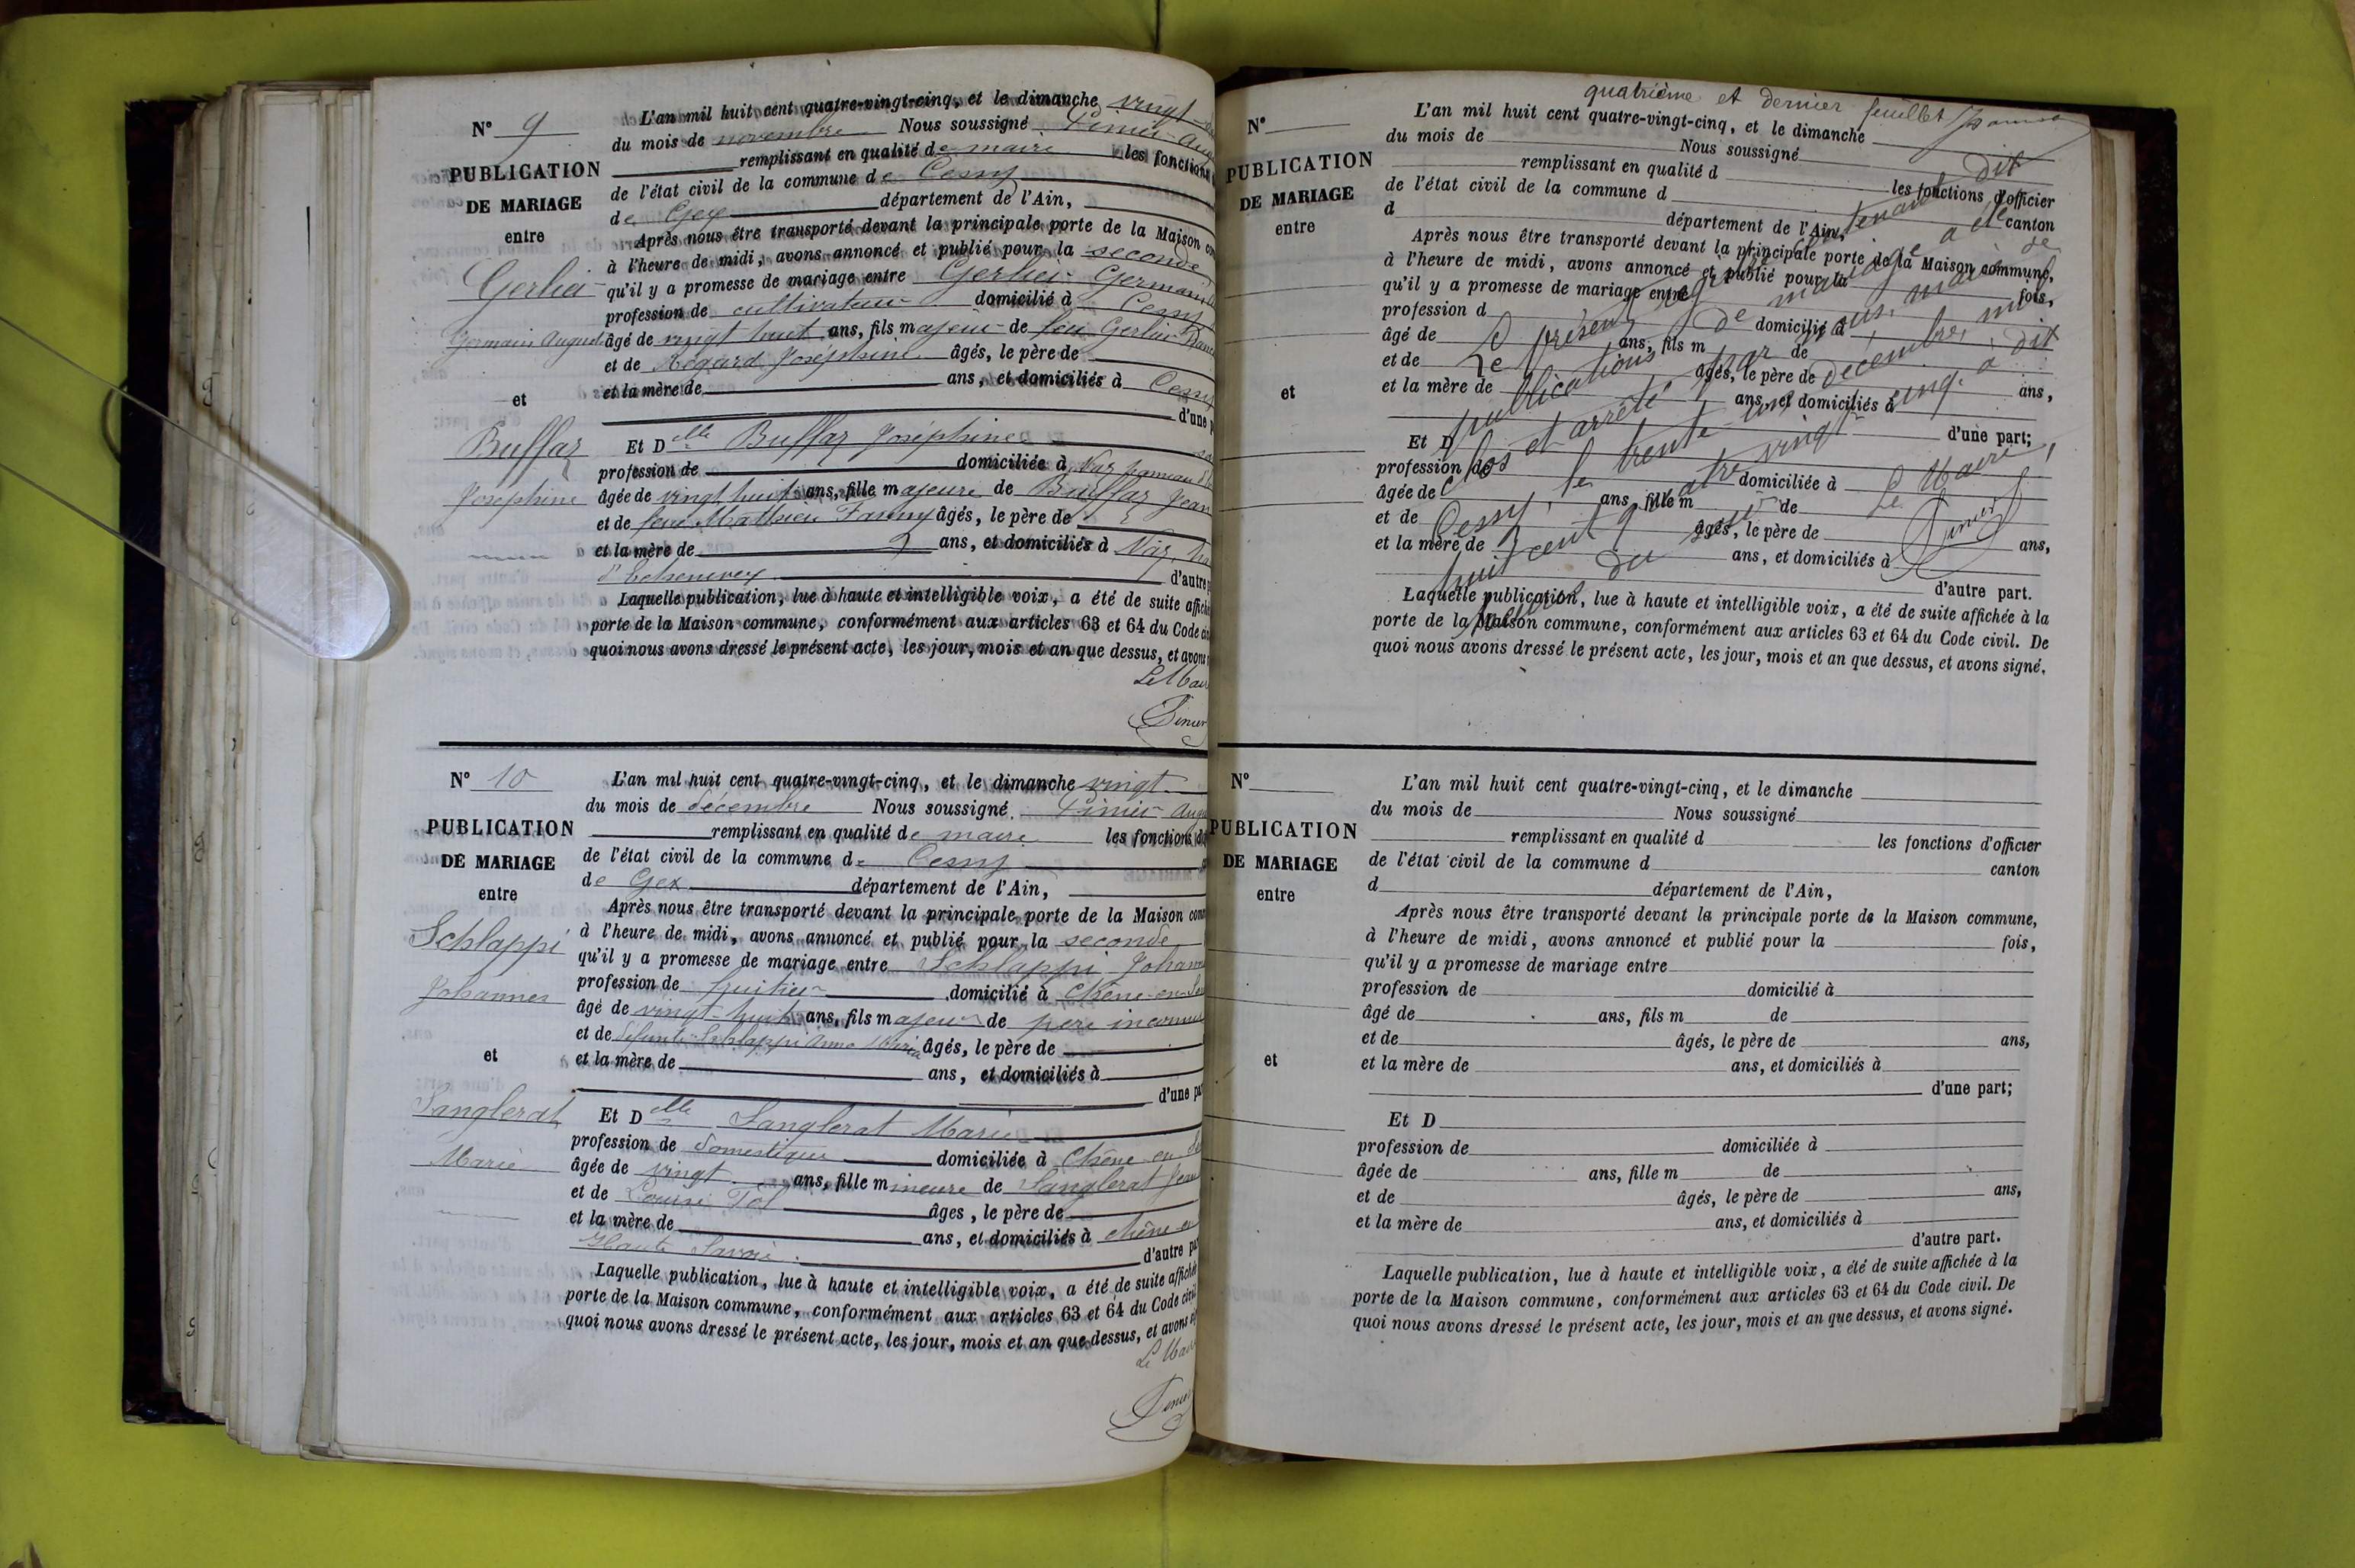 N° 9
PUBLICATION
DE MARIAGE
entre
Gerlier
Germain August
et
Buffaz
Joséphine
L'an mil huit cent quatre-vingt-cinq, et le dimanche vingt
du mois de novembre Nous soussigné Pinier
remplissant en qualité de maire les fonctions
de l'état civil de la commune de Cessy
de Gex département de l'Ain,
Après nous être transporté devant la principale porte de la Maison
à l'heure de midi, avons annoncé et publié pour la seconde
qu'il y a promesse de mariage entre Gerlier Germain
profession de cultivateur domicilié à Cessy
âgé de vingt huit ans, fils majeur de feu Gerlier
et de Régard Joséphine âgés, le père de
et la mère de ans, et domiciliés à Cessy
d'une
Et Delle Buffaz Joséphine
profession de domiciliée à Naz hameau
âgée de vingt huit ans, fille majeure de Buffaz Jean
et de feue Mathieu Fanny âgés, le père de
et la mère de ans, et domiciliés à Naz
d'Echenevex d'autre
Laquelle publication, lue à haute et intelligible voix, a été de suite
porte de la Maison commune, conformément aux articles 63 et 64 du Code
quoi nous avons dressé le présent acte, les jour, mois et an que dessus, et avons
Le Mai
Pinier
N° 10
PUBLICATION
DE MARIAGE
entre
Schlappi
Johannes
et
Sanglerat
Marie
L'an mil huit cent quatre-vingt-cinq, et le dimanche vingt
du mois de décembre Nous soussigné Pinier
remplissant en qualité de maire les fonctions
de l'état civil de la commune de Cessy
de Gex département de l'Ain,
Après nous être transporté devant la principale porte de la Maison
à l'heure de midi, avons annoncé et publié pour la seconde
qu'il y a promesse de mariage entre Schlappi Johann
profession de fruitier domicilié à Chêne-en-Se
âgé de vingt-huit ans, fils majeur de père inconnu
et de défunte Schlappi Anna Maria âgés, le père de
et la mère de ans, et domiciliés à
d'une
Et Delle Sanglerat Marie
profession de domestique domiciliée à Chêne en Se
âgée de vingt ans, fille mineure de Sanglerat Jean
et de Louise âgés, le père de
et la mère de ans, et domiciliés à chêne en
Haute Savoie. d'autre
Laquelle publication, lue à haute et intelligible voix, a été de suite
porte de la Maison commune, conformément aux articles 63 et 64 du Code
quoi nous avons dressé le présent acte, les jour, mois et an que dessus, et avons
Le Mai
Pinier
quatrième et dernier feuillet
N°
PUBLICATION
DE MARIAGE
entre
et
L'an mil huit cent quatre-vingt-cinq, et le dimanche
du mois de Nous soussigné
remplissant en qualité d les fonctions d'officier
de l'état civil de la commune d canton
d département de l'Ain,
Après nous être transporté devant la principale porte de la Maison commune,
à l'heure de midi, avons annoncé et publié pour la fois,
qu'il y a promesse de mariage entre
profession d domicilié à
âgé de ans, fils m de
et de âgés, le père de ans,
et la mère de ans, et domiciliés à
d'une part;
Et D
profession de domiciliée à
âgée de ans, fille m de
et de âgés, le père de ans,
et la mère de ans, et domiciliés à
d'autre part.
Laquelle publication, lue à haute et intelligible voix, a été de suite affichée à la
porte de la Maison commune, conformément aux articles 63 et 64 du Code civil. De
quoi nous avons dressé le présent acte, les jour, mois et an que dessus, et avons signé.
Le présent registre contenant dix
publications de mariage a été
clos et arrêté par nous, maire de
Cessy, le trente un décembre mil
huit cent quatre vingt cinq. à dix
heures du soir
Le Maire,
Pinier
N°
PUBLICATION
DE MARIAGE
entre
et
L'an mil huit cent quatre-vingt-cinq, et le dimanche
du mois de Nous soussigné
remplissant en qualité d les fonctions d'officier
de l'état civil de la commune d canton
d département de l'Ain,
Après nous être transporté devant la principale porte de la Maison commune,
à l'heure de midi, avons annoncé et publié pour la fois,
qu'il y a promesse de mariage entre
profession de domicilié à
âgé de ans, fils m de
et de âgés, le père de ans,
et la mère de ans, et domiciliés à
d'une part;
Et D
profession de domiciliée à
âgée de ans, fille m de
et de âgés, le père de ans,
et la mère de ans, et domiciliés à
d'autre part.
Laquelle publication, lue à haute et intelligible voix, a été de suite affichée à la
porte de la Maison commune, conformément aux articles 63 et 64 du Code civil. De
quoi nous avons dressé le présent acte, les jour, mois et an que dessus, et avons signé.